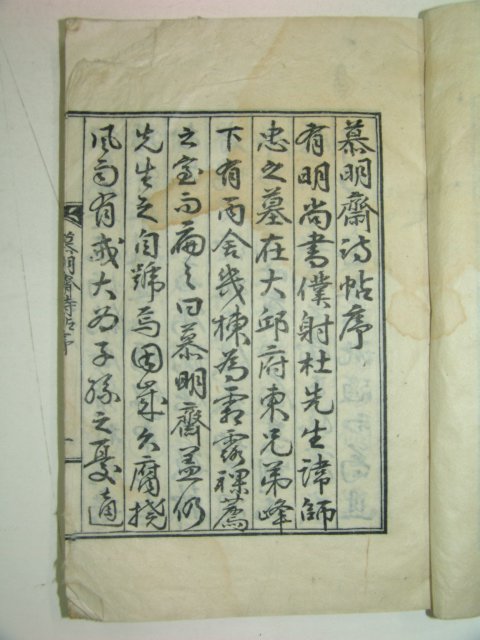 慕明齋詩帖序
有明尚書僕射杜先生諱師
忠之墓在大邱府東兄弟峰
下有丙舍幾棟為霜露祼薦
之室而扁之曰慕明齋盖仍
先生之自號焉因歲久腐撓
風雨有戒大為子孫之憂適
慕明齋詩帖序